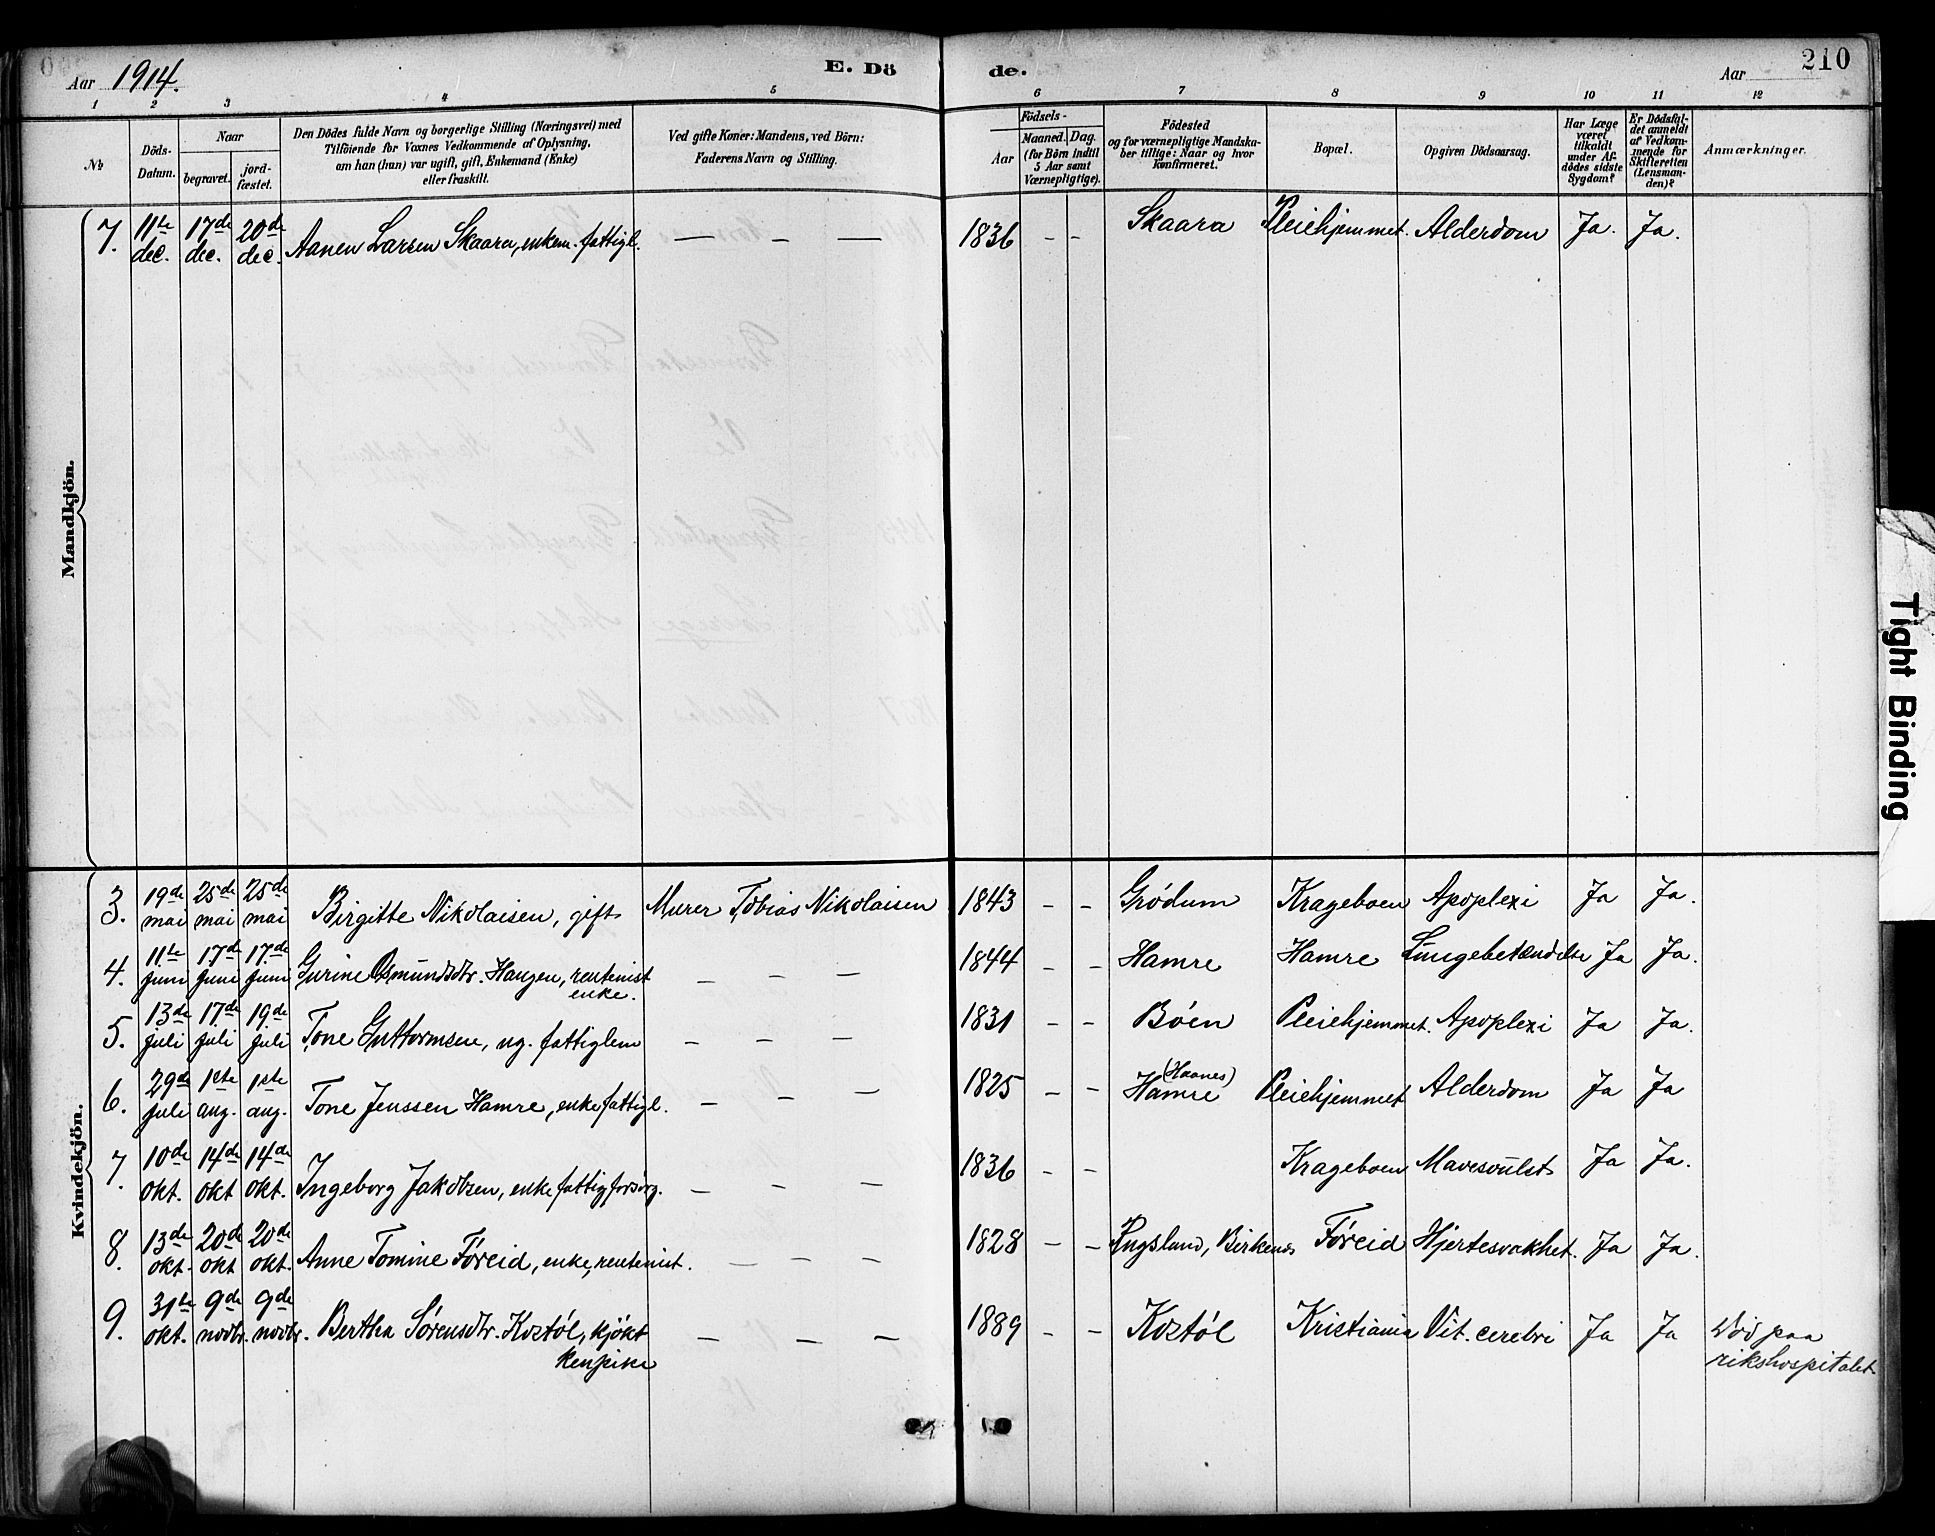 Aar 1914. E. Dö de. Aar 210
1 2 3 4 5 6 7 8 9 10 11 12
№
Döds-Datum.
Naar
begravet.
jord-fæstet.
Den Dödes fulde Navn og borgerlige Stilling (Næringsvei) med
Tilföiende for Voxnes Vedkommende af Oplysning,
om han (hun) var ugift, gift, Enkemand (Enke)
eller fraskilt.
Ved gifte Koner: Mandens, ved Börn:
Faderens Navn og Stilling.
Födsels-
Aar
Maaned. Dag.
(for Börn indtil
5 Aar samt
Værnepligtige).
Födested
og for værnepligtige Mandska-
ber tillige: Naar og hvor
konfirmeret.
Bopæl.
Opgiven Dödsaarsag.
Har Læge
været
tilkaldt
under Af-
dödes sidste
Sygdom?
Er Dödsfal-
det anmeldt
af Vedkom-
mende for
Skifteretten
(Lensman-
den)?
Anmærkninger.
Mandkjön.
7. 11te dec. 17de dec. 20de dec. Aanen Larsen Skaara, enkem. fattigl. — — — 1836 – – Skaara Pleiehjemmet. Alderdom Ja. Ja.
Kvindekjön.
3. 19de mai 25de mai 25de mai Birgitte Nikolaisen, gift Murer Tobias Nikolaisen 1843 – – Grödum Krageboen Apoplexi Ja Ja.
4. 11te juni 17d juni 17de juni Gurine Osmundsdtr. Haugen, rentenist enke. – – – 1844 – – Hamre Hamre Lungebetændelse Ja Ja.
5. 13de juli 17de juli 19de juli Tone Guttormsen, ug. fattiglem – – – 1831 – – Böen Pleiehjemmet. Apoplexi Ja Ja.
6. 29de juli 1ste aug. 1ste aug. Tone Jenssen Hamre, enke fattigl. – – – 1825 – – (Haanes) Hamre Pleiehjemmet Alderdom Ja Ja
7. 10de okt. 14de okt 14de okt. Ingeborg Jakobsen, enke fattigforsörg. – – – 1836 – – Krageboen Mavesvulst Ja Ja.
8. 13de okt. 20de okt 20de okt. Anne Tomine Föreid, enke, rentenist. – – – 1828 – – Engsland, Birkenes Föreid Hjertesvakhet. Ja Ja.
9. 31te okt. 9de novbr. 9de novbr. Bertha Sörensdtr. Kostöl, kjök-kenpike – – – 1889 – – Kostöl Kristiania Vit. cerebri Ja Ja Död paa
rikshospitalet
Tight Binding